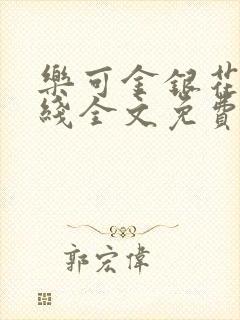 樂可金銀花
綫全文免費
郭宏偉